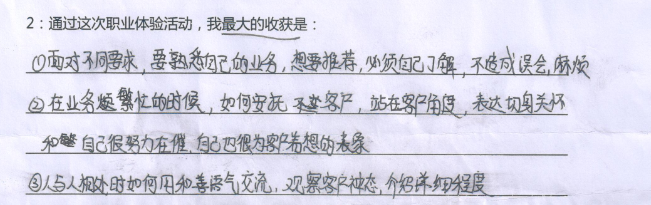 2：通过这次职业体验活动，我最大的收获是：
①面对不同需求，要熟悉自己的业务，想要推荐，必须自己了解，不造成误会，麻烦
②在业务繁忙的时候，如何安抚客户，站在客户角度，表达切身关怀
和 自己很努力在催，自己也很为客户着想的表象
③人与人相处时如何用和善语气交流，观察客户神态，介绍详细程度